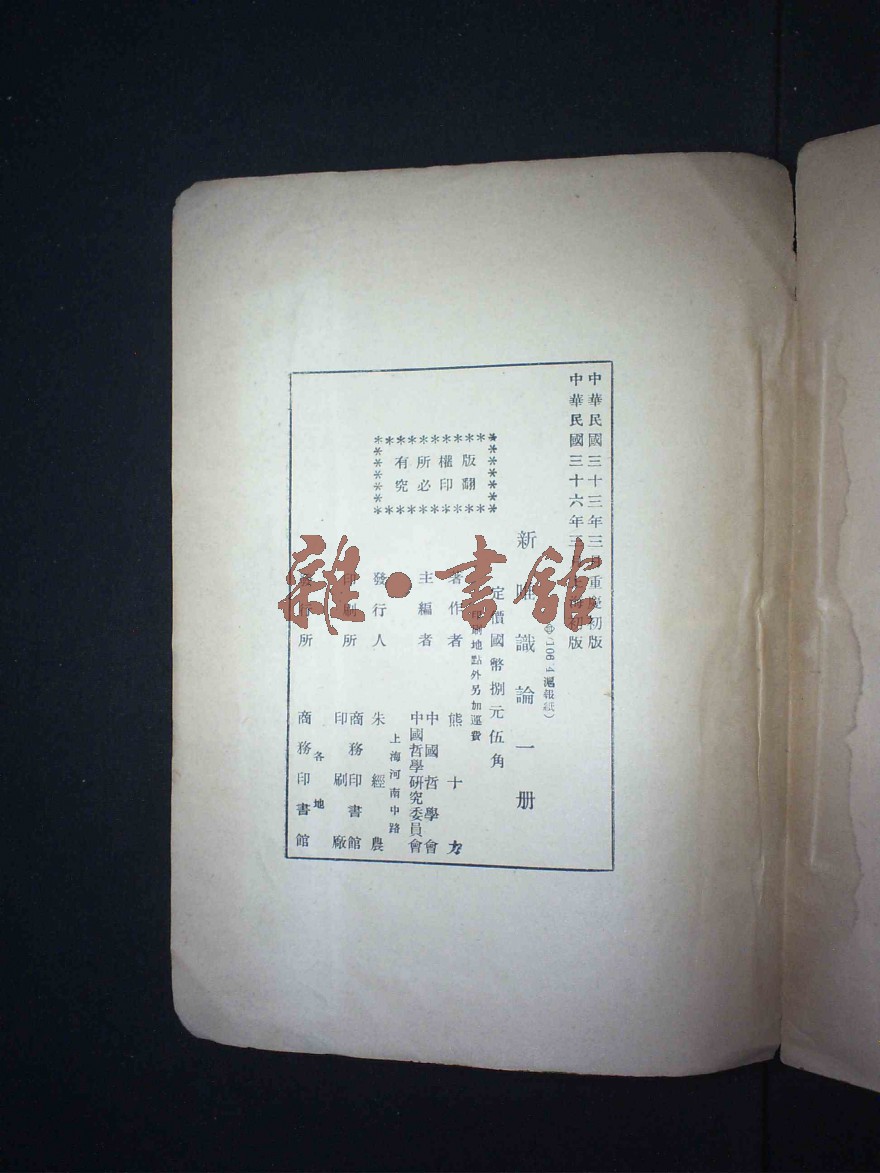 中華民國三十三年三月重慶初版
中華民國三十六年三月上海初版
(106.4 滬報紙)
新唯識論一册
定價國幣捌元伍角
印刷地點外另加運費
版權所有
翻印必究
著作者 熊十力
主編者 中國哲學會
中國哲學研究委員會
發行人 朱經農
上海河南中路
印刷所 商務印書館
印刷廠
各地
發行所 商務印書館
雜·書館